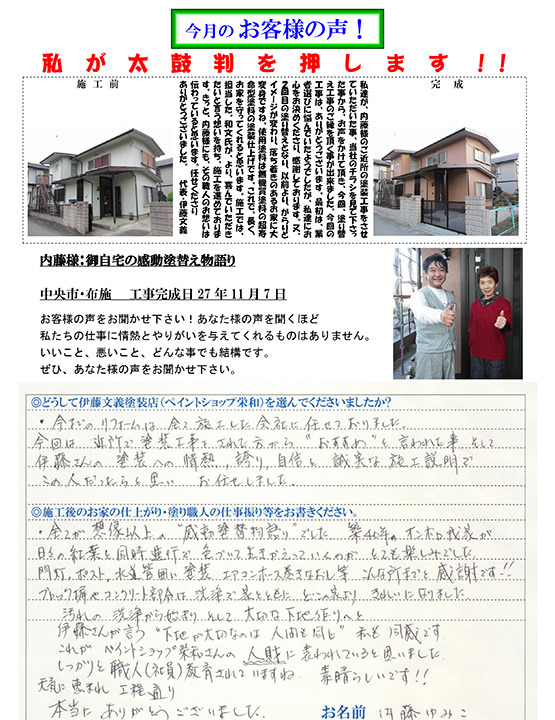 今月の お客様の声！
私が太鼓判を押します!!
施工前
完成
私達が、内藤様のご近所の塗装工事をさせ
ていただいた事、当社のチラシを見て下さっ
た事から、お声をかけて頂き、今回、塗り替
え工事のご縁を頂く事が出来ました。今回の
工事は、ありがとうございます。最初は、業
者選びに悩んでいたようでしたが、私達にお
心をお決めくださり、感謝しております。又、
2回目の塗り替えとなり、以前より、がらりと
イメージが変わり、落ち着きのあるお家に大
変身ですね。使用塗料は無機質塗料の超寿
命型塗料の塗装仕上げです。これで、長く、
お家を守ってくれると思います。施工では、
担当した、和文氏が、より、喜んでいただき
たいと言う想いを持ち、施工を進めておりま
す。きっと、内藤様にも、その職人のお想いは
伝わっていると思います。任せてくださり
ありがとうございました。 代表・伊藤文義
内藤様:御自宅の感動塗替え物語り
中央市・布施 工事完成日27年11月7日
お客様の声をお聞かせ下さい！あなた様の声を聞くほど
私たちの仕事に情熱とやりがいを与えてくれるものはありません。
いいこと、悪いこと、どんな事でも結構です。
ぜひ、あなた様の声をお聞かせ下さい。
◎どうして伊藤文義塗装店(ペイントショップ栄和)を選んでくださいましたか?
・今までのリフォームは全て施工した会社に任せておりました。
今回は近所で塗装工事をされた方から、"おすすめ"と言われた事、そして
伊藤さんの塗装への情熱、誇り、自信と誠実な施工説明で
この人だったらと思い お任せしました。
◎施工後のお家の仕上がり・塗り職人の仕事振り等をお書きください。
・全てが想像以上の"感動塗替物語り"でした。築40年のオンボロ我家が
日々の紅葉と同時進行で色づいてよみがえっていくのがとても楽しみでした。
門灯、ポスト、水道管囲い塗装、エアコンホース巻きなおし等 こんな所までと感謝です!!
ブロック塀やコンクリート部分は洗浄で家とともに どこの家より きれいになりました。
汚れの洗浄から始まり そして 大切な下地作りへと
伊藤さんが言う "下地が大切なのは人間も同じ" 私も同感です。
これが ペイントショップ栄和さんの 人財に表われていると思いました。
しっかりと職人(社員)教育されていますね 素晴らしいです!!
天気に恵まれ 工程通り
本当に ありがとうございました。 お名前 内藤ゆみこ